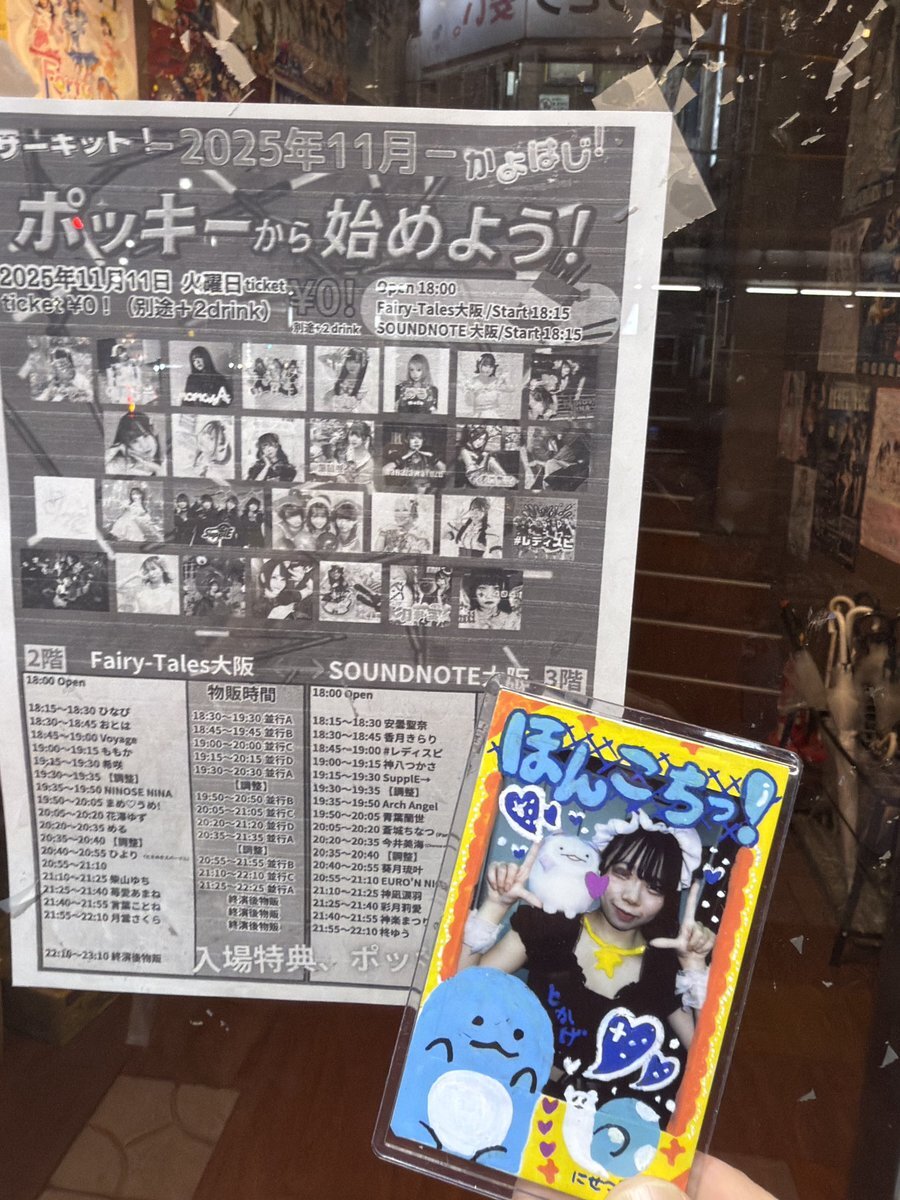 サーキット！
2025年11月
かよはじ!
ポッキーから始めよう!
2025年11月11日 火曜日 ticket
ticket ¥0！ (別途+2drink)
¥0!
別途+2 drink
Open 18:00
Fairy-Tales大阪/Start 18:15
SOUNDNOTE大阪/Start 18:15
#レディスピ
2階 Fairy-Tales大阪
SOUNDNOTE大阪 3階
18:00 Open
18:15～18:30 ひなぴ
18:30～18:45 おとは
18:45～19:00 Voyage
19:00～19:15 ももか
19:15～19:30 希咲
19:30～19:35 【調整】
19:35～19:50 NINOSE NINA
19:50～20:05 まめ♡うめ!
20:05～20:20 花澤ゆず
20:20～20:35 める
20:35～20:40 【調整】
20:40～20:55 ひより
20:55～21:10
21:10～21:25 柴山ゆち
21:25～21:40 苺愛あまね
21:40～21:55 言葉ことね
21:55～22:10 月雲さくら
22:10～23:10 終演後物販
物販時間
18:30～19:30 並行A
18:45～19:45 並行B
19:00～20:00 並行C
19:15～20:15 並行D
19:30～20:30 並行A
【調整】
19:50～20:50 並行B
20:05～21:05 並行C
20:20～21:20 並行D
20:35～21:35 並行A
【調整】
20:55～21:55 並行B
21:10～22:10 並行C
21:25～22:25 並行A
終演後物販
終演後物販
終演後物販
18:00 Open
18:15～18:30 安曇聖奈
18:30～18:45 香月きらり
18:45～19:00 #レディスピ
19:00～19:15 神八つかさ
19:15～19:30 SupplE→
19:30～19:35 【調整】
19:35～19:50 Arch Angel
19:50～20:05 青葉蘭世
20:05～20:20 蒼城ちなつ
20:20～20:35 今井美海
20:35～20:40 【調整】
20:40～20:55 葵月琉叶
20:55～21:10 EURO'N NI
21:10～21:25 神凪凛羽
21:25～21:40 彩月莉愛
21:40～21:55 神楽まつり
21:55～22:10 柊ゆう
入場特典、ポッ
ほんこちっ!
とかげ
にせつ